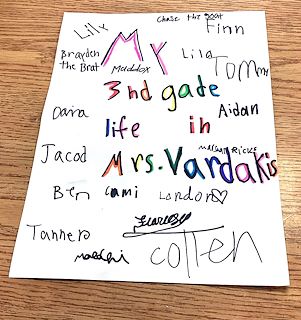 Lily
Chase the Goat
Finn
Brayden
the Brat
MY
Maddox
Lila
Tommy
3nd gade
Daira
life in
Aidan
Jacod
Mrs. Vardakis
Ben
cami
London♡
Tanner
collen